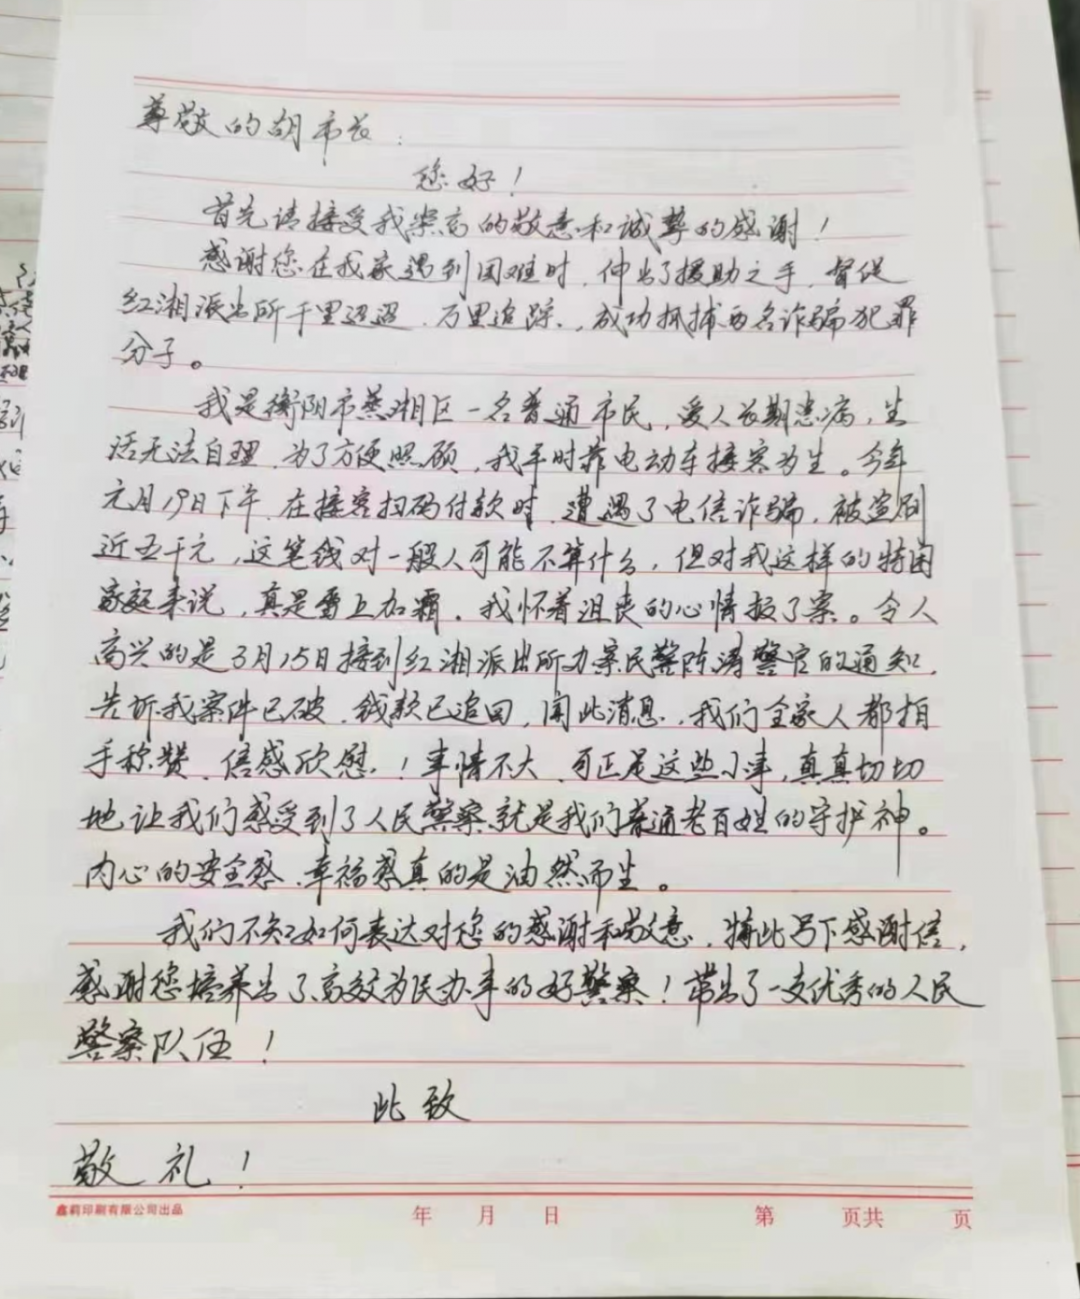 尊敬的胡市长:
您好!
首先请接受我崇高的敬意和诚挚的感谢!
感谢您在我家遇到困难时,伸出了援助之手,督促
红湘派出所千里迢迢、万里追踪,成功抓捕两名诈骗犯罪
分子。
我是衡阳市蒸湘区一名普通市民,爱人长期患病,生
活无法自理,为了方便照顾,我平时靠电动车接客为生。今年
元月19日下午,在接客扫码付款时,遭遇了电信诈骗,被盗刷
近五千元,这笔钱对一般人可能不算什么,但对我这样的特困
家庭来说,真是雪上加霜,我怀着沮丧的心情报了案。令人
高兴的是3月15日接到红湘派出所办案民警陈涛警官的通知,
告诉我案件已破,钱款已追回,闻此消息,我们全家人都拍
手称赞、倍感欣慰!事情不大,可正是这些小事,真真切切
地让我们感受到了人民警察就是我们普通老百姓的守护神。
内心的安全感、幸福感真的是油然而生。
我们不知如何表达对您的感谢和敬意,特此写下感谢信,
感谢您培养出了高效为民办事的好警察!带出了一支优秀的人民
警察队伍!
此致
敬礼!
鑫莉印刷有限公司出品 年 月 日 第 页共 页